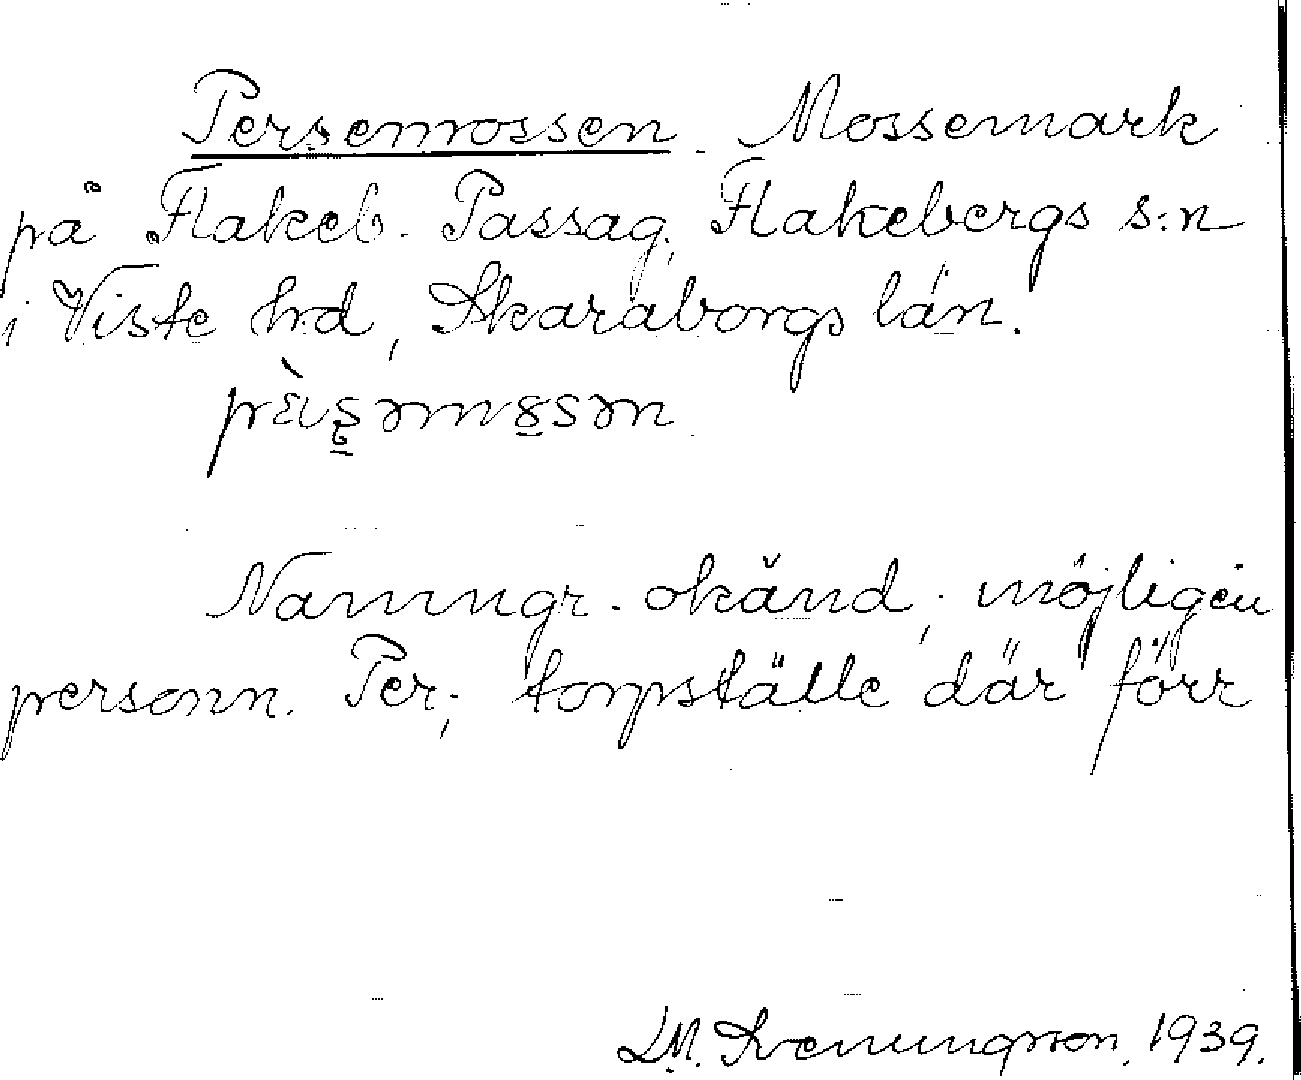 Persemossen. Mossemark
på Flakeb. Passag. Flakebergs s:n
i Viste hd, Skaraborgs län.
Namngr. okänd, möjligen
personn. Per; torpställe där förr
L.M. Svenungsson. 1939.